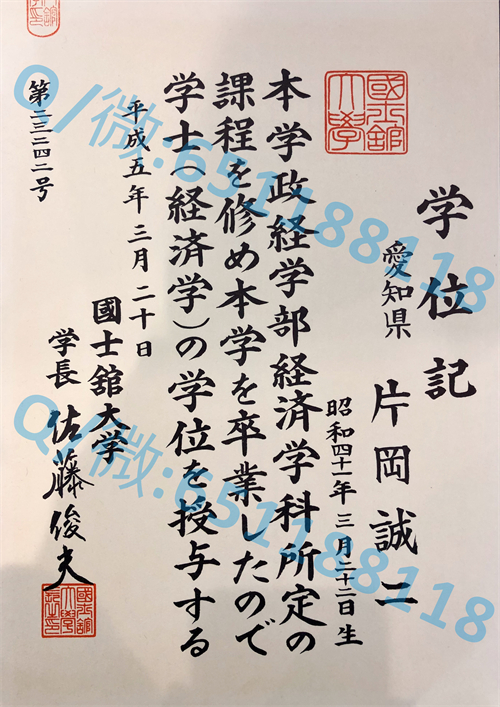 学位記
愛知県
片岡誠二
昭和四十一年三月二十二日生
國士舘大學
本学政経学部経済学科所定の
課程を修め本学を卒業したので
学士(経済学)の学位を授与する
平成五年三月二十日
國士舘大学
学長 佐藤俊夫
第二三二四二号
Q/微:651188118
Q/微:651188118